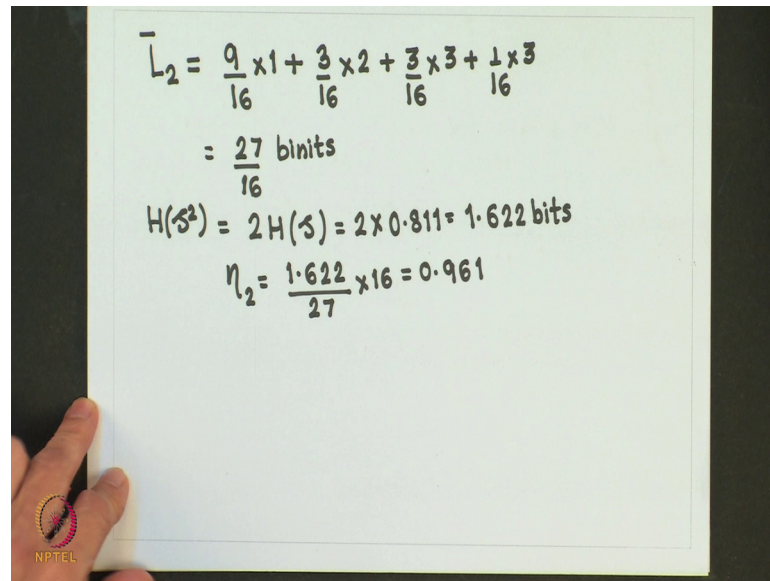 L̄₂ = 9/16 ×1 + 3/16 ×2 + 3/16 ×3 + 1/16 ×3
= 27/16 binits
H(S²) = 2H(S) = 2×0.811 = 1.622 bits
η₂ = 1.622/27 ×16 = 0.961
NPTEL